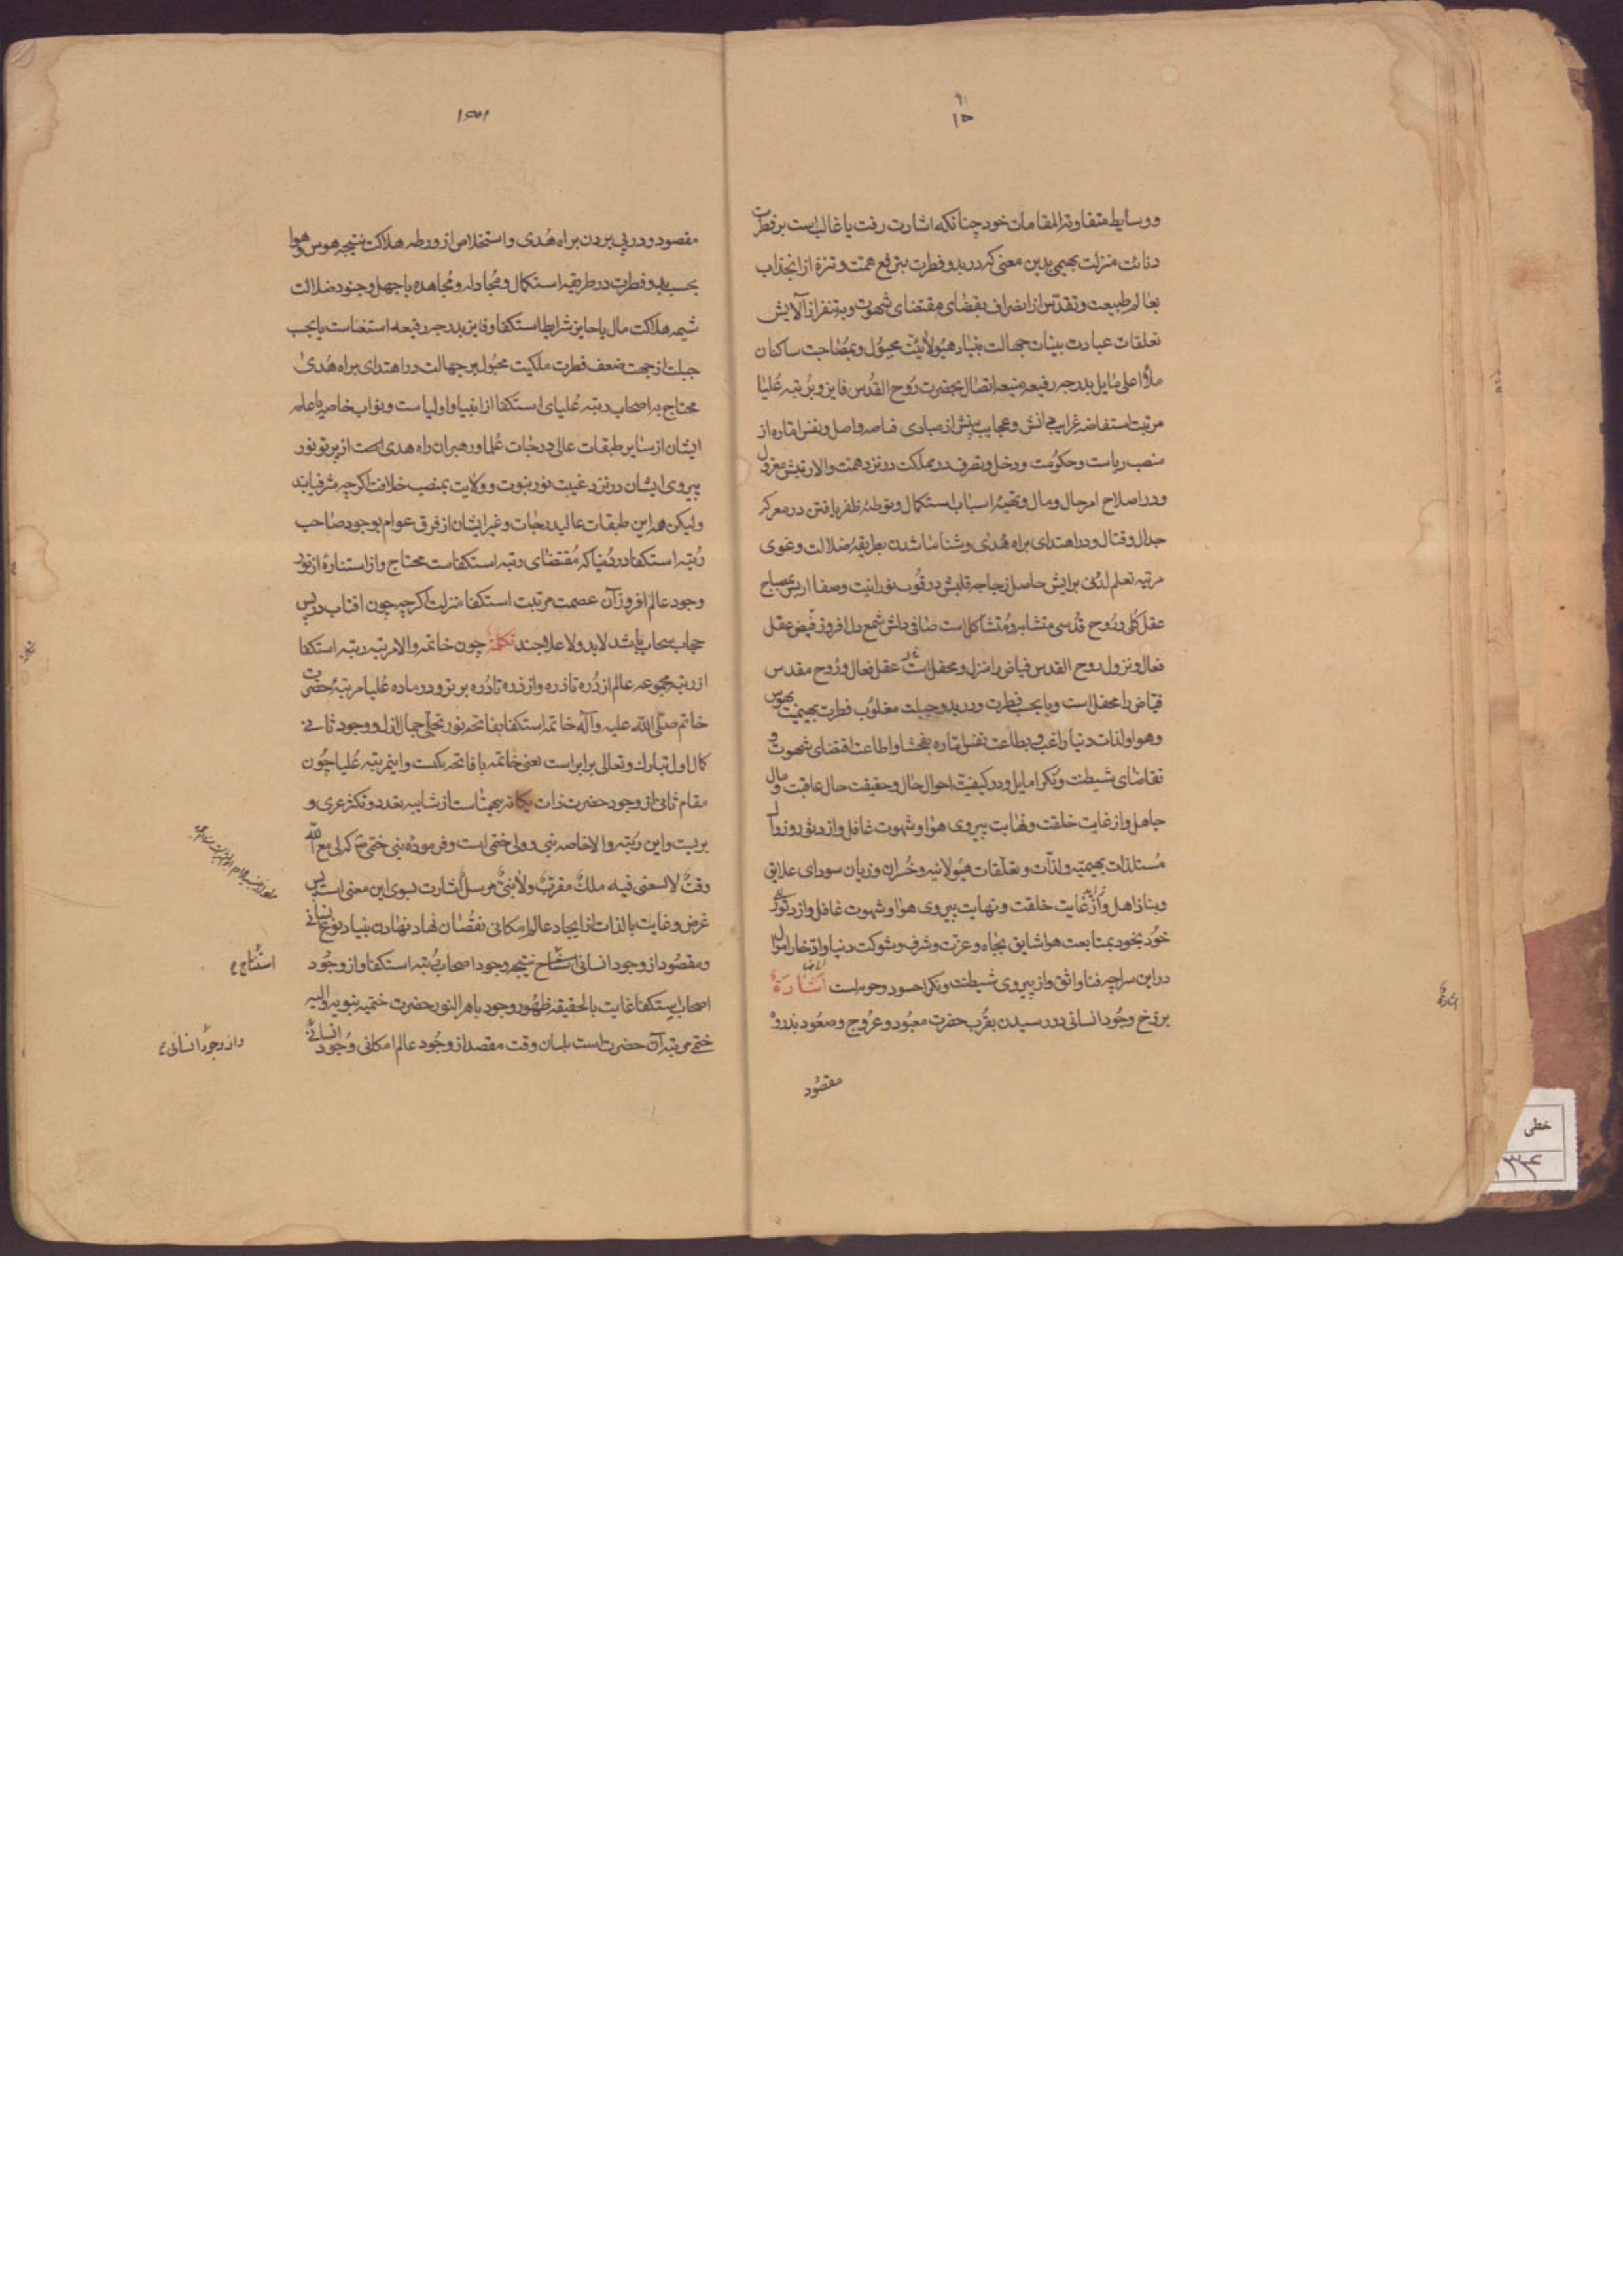 و وسایط متفاوته المقامات خود چنانکه اشارت رفت یا غالبست بر فطرت
دنائت منزلت بهیمی بدین معنی که در بدو فطرت بترفع همت و تنزه از انجذاب
بعالم طبیعت و تقدس از انصراف بقضای مقتضای شهوت و به تنفر از آلایش
تعلقات عبادت بنیان جهالت بنیاد هیولائیت مجبول و بمصاحبت ساکنان
ملأ اعلی مایل بدرجه رفیعه منیعه اتصال بحضرت روح القدس فایز و برتبه علیا
مرتبت استفاضه غرایب دانش و عجایب بینش از مبادی واصل و نفس اماره از
منصب ریاست و حکومت و دخل و تصرف در مملکت در نزد همت والا رتبتش معزول
و در اصلاح امر حال و مال و تهیئه اسباب استکمال و توطئه ظفر یافتن در معرکه
جدال و قتال و در اهتدای براه هدی و شناسا شدن بطریقه ضلالت و غوی
مرتبه تعلم لدنی برایش حاصل زجاجه قلبش در نورانیت و صفا بمصباح
عقل کلی و روح قدسی متشابه و متشاکل است صافی دلش شمع دل افروز فیض عقل
فعال و نزول روح القدس فیاض را منزل و محفل است عقل فعال و روح مقدس
فیاض را محفل است و یا بحسب فطرت و در بدو جبلت مغلوب فطرت بهیمیت بهوس
و هوا و لذات دنیا راغب و بطاعت نفس اماره بفحشا و اطاعت اقتضای شهوت و
تقاضای شیطنت و نکرا مایل و در کیفیت احوال حال و حقیقت حال عاقبت و مال
جاهل و از غایت خلقت و نهایت پیروی هوا و شهوت غافل و از دثور و زوال
مستلذات بهیمیه و لذات و تعلقات هیولانیه و خسران و زیان سودای علایق
دنیا ذاهل و از غایت خلقت و نهایت پیروی هوا و شهوت غافل و از
خود بخود بمتابعت هوا شایق بجاه و عزت و شرف و شوکت دنیا و ادخار اموال
در این سراچه فنا واثق و از پیروی شیطنت و نکرا حسود و است اشارة
برزخ وجود انسانی در رسیدن بقرب حضرت معبود و عروج و صعود بذروه
مقصود
مقصود و در پی بردن براه هدی و استخلاص از ورطه هلاکت نتیجه هوس و هوا
بحسب بدو فطرت در طریقه استکمال و مجادله و مجاهده با جهل و جنود ضلالت
شیمه هلاکت مال یا حایز شرایط استکفا و فایز بدرجه رفیعه استغناست یا بحسب
جبلت از جهت ضعف فطرت ملکیت مجبول بر جهالت در اهتدای براه هدی
محتاج به اصحاب رتبه علیای استکفا از انبیا و اولیاست و نواب خاصه با علم
ایشان از سایر طبقات عالی درجات علما و رهبران راه هدی از پرتو نور
پیروی ایشان در نزد غیبت نور نبوت و ولایت بمنصب خلافت اگرچه شرفیابند
ولیکن همه این طبقات عالیدرجات و غیر ایشان از فرق عوام بوجود صاحب
رتبه استکفا در دنیا که مقتضای رتبه استکفاست محتاج و از استناره از نور
وجود عالم افروز آن عصمت مرتبت استکفا منزلت اگرچه چون افتاب در پس
حجاب سحاب باشد لابد و لاعلاجند تکملة چون خاتمه والا مرتبه رتبه استکفا
از رتبه مجموعه عالم از ذره تا دره و از ذره تا دره برتر و در ماده علیا مرتبه حضرت
خاتم صلی الله علیه وآله خاتمه استکفا بفاتحه نور تجلی جمال ازل و وجود ثانی
کمال اول تبارک و تعالی برابر است یعنی خاتمه با فاتحه یکیست و اینمرتبه علیا چون
مقام ثانی از وجود حضرت ذات یگانه بیهمتاست از شایبه تعدد و تکثر عری و
بریست و این رتبه والا خاصه نبی و ولی ختمی است و فرموده نبی ختمی که لی مع الله
وقت لا یسعنی فیه ملک مقرب ولا نبی مرسل اشارت بسوی این معنی است پس
غرض و غایت بالذات از ایجاد عالم امکانی نقصان نهاد نهادن بنیاد نوع انسانی
و مقصود از وجود انسانی استنتاج نتیجه وجود اصحاب رتبه استکفا و از وجود
اصحاب استکفا غایت بالحقیقه ظهور وجود باهر النور حضرت ختمیه نبویه والیه
ختمی مرتبه آن حضرت است بلسان وقت مقصد از وجود عالم امکانی وجود انسانی
استنتاج
و از وجود انسانی
خطی